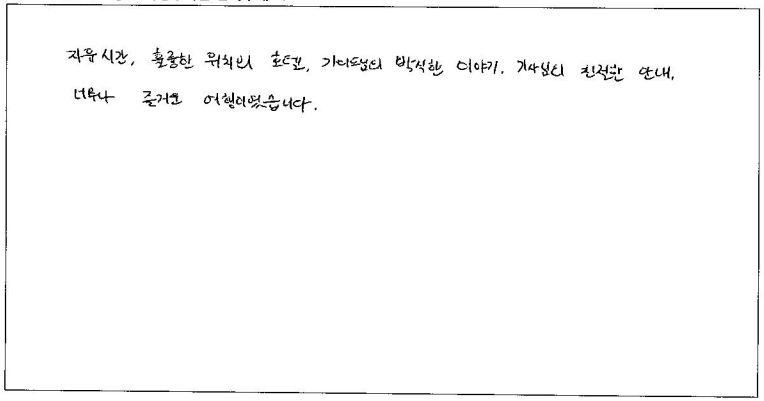 자유시간, 훌륭한 위치의 호텔, 가이드님의 박식한 이야기, 기사님의 친절한 안내,
너무나 즐거운 여행이었습니다.